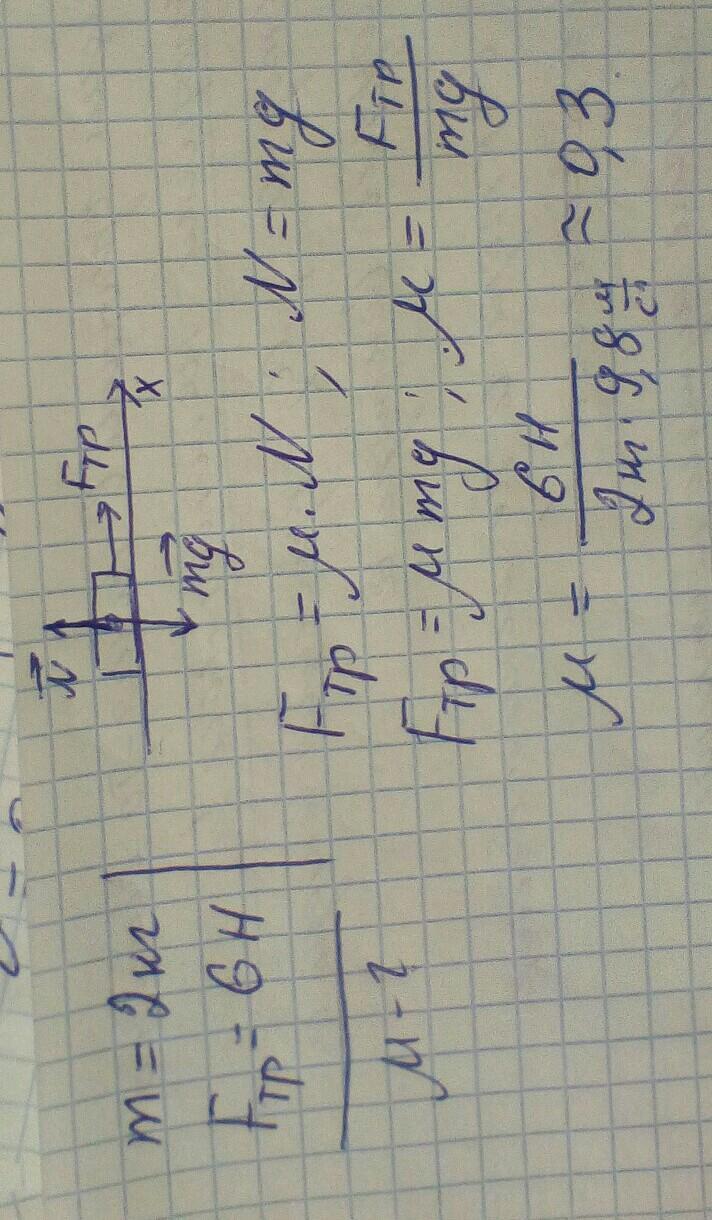 m = 2кг
Fтр = 6 Н
μ - ?
N⃗
Fтр
x
m⃗g
Fтр = μ · N ; N = mg
Fтр = μ mg ; μ = Fтр / mg
μ = 6 Н / 2кг · 9,8 м/с² ≈ 0,3.